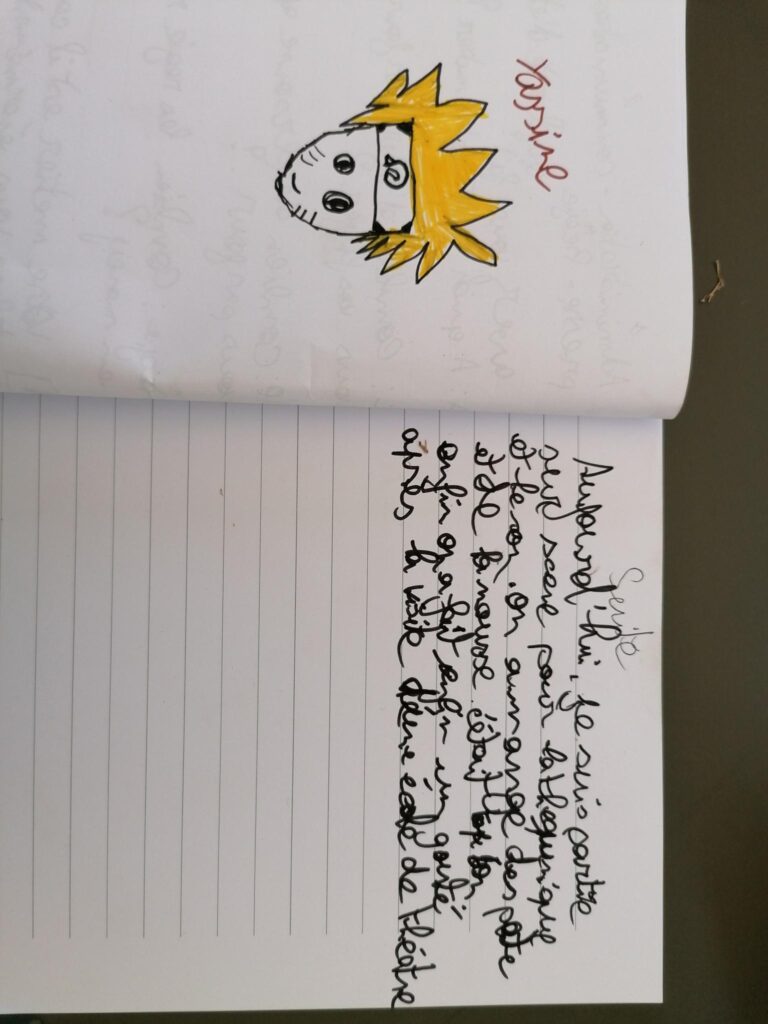 Yassine
Aujourd'hui, je suis partie
seur scene pour lathequnique
et le son, on aumange des pate
et de la mousse. c'était bon
enfin on a fait enfin un gouté
après la visite d'une école de théâtre